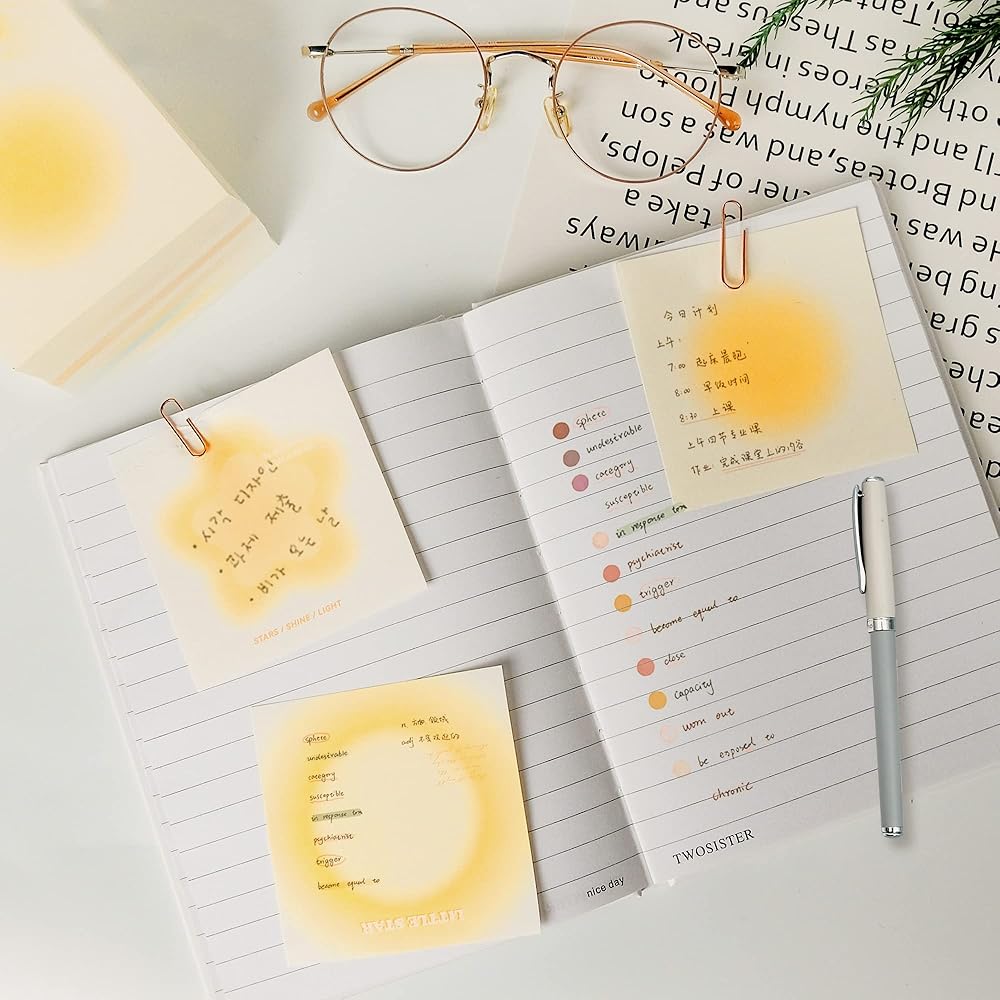 always
s, take a
ther of Pelops,
was a son
and the nymph Plouto
other heroes in Greek
as Theseus and
nd Broteas, and was
He was
今日计划
上午:
7:00 起床晨跑
8:00 早饭时间
8:30 上课
上午四节专业课
作业: 完成课堂上的内容
• 시각 디자인
• 과제 제출
• 비가 오는 날
STARS / SHINE / LIGHT
sphere
undesirable
category
susceptible
in response to
psychiatrist
trigger
become equal to
close
capacity
worn out
be exposed to
chronic
TWOSISTER
sphere n.
undesirable adj 不受欢迎的
category
susceptible
in response to
psychiatrist
trigger
become equal to
LITTLE STAR
nice day